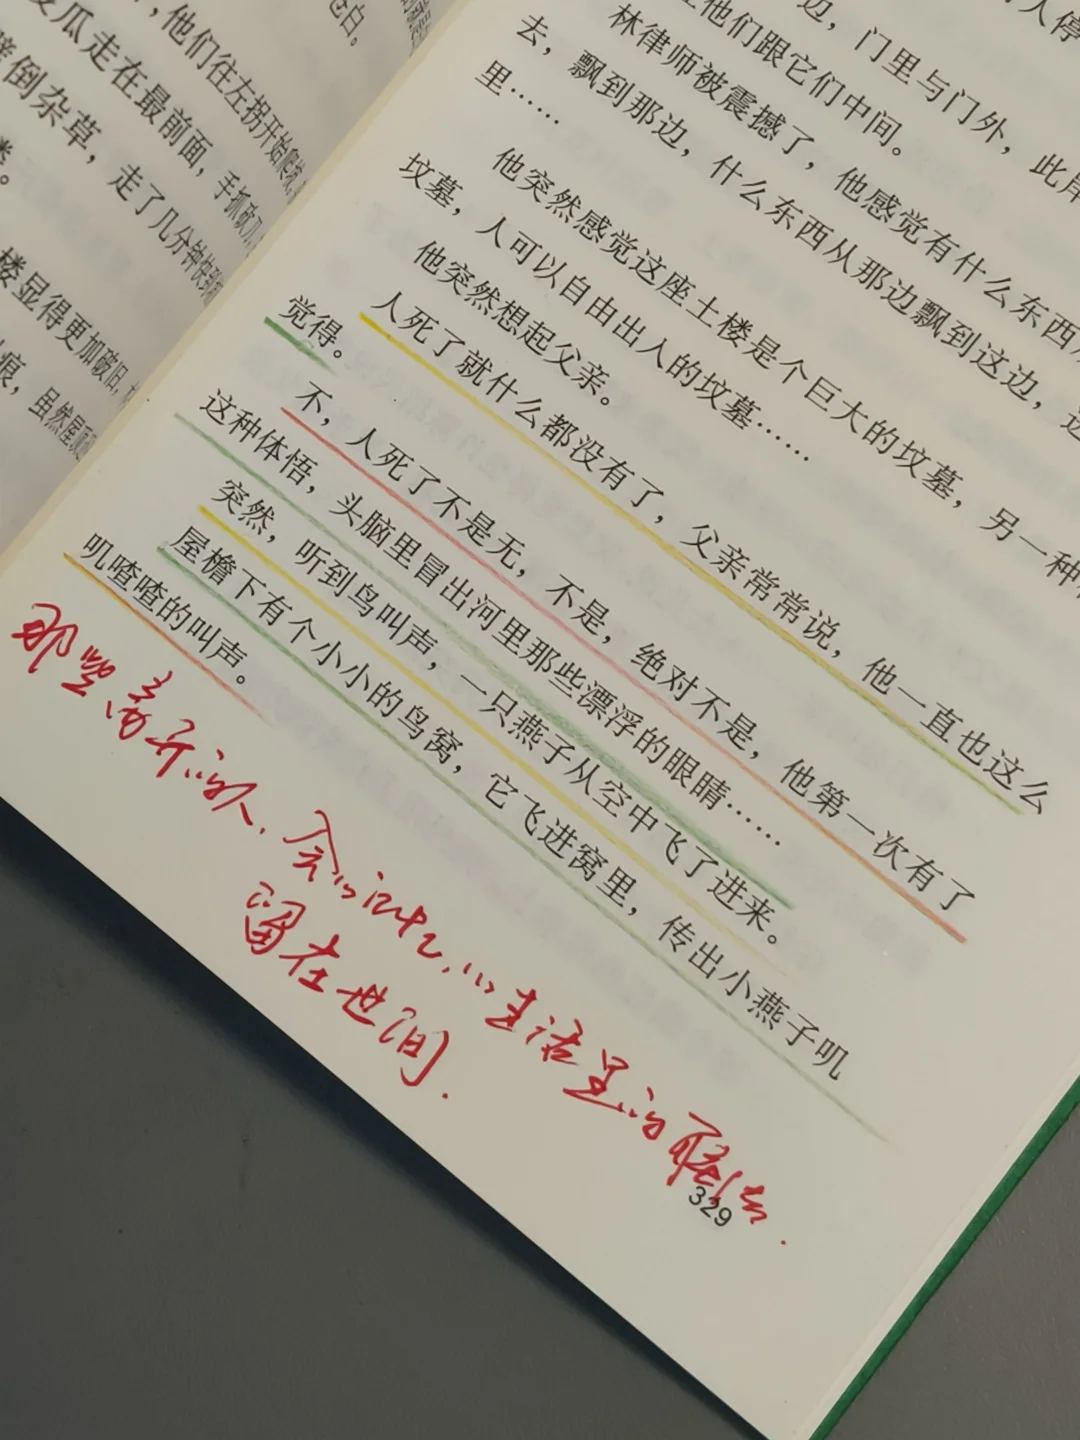 苍白。
，他们往左拐开始爬坡，
瓜走在最前面，手抓砍刀，
倒杂草，走了几分钟快到
楼。
楼显得更加破旧，
痕，虽然屋顶
边，门里与门外，此岸
他们跟它们中间。
林律师被震撼了，他感觉有什么东西
去，飘到那边，什么东西从那边飘到这边，这
里……
他突然感觉这座土楼是个巨大的坟墓，另一种
坟墓，人可以自由出入的坟墓……
他突然想起父亲。
人死了就什么都没有了，父亲常常说，他一直也这么
觉得。
不，人死了不是无，不是，绝对不是，他第一次有了
这种体悟，头脑里冒出河里那些漂浮的眼睛……
突然，听到鸟叫声，一只燕子从空中飞了进来。
屋檐下有个小小的鸟窝，它飞进窝里，传出小燕子叽
叽喳喳的叫声。
那些离开的人，会以记忆，以生活里的联结
留在世间.
329